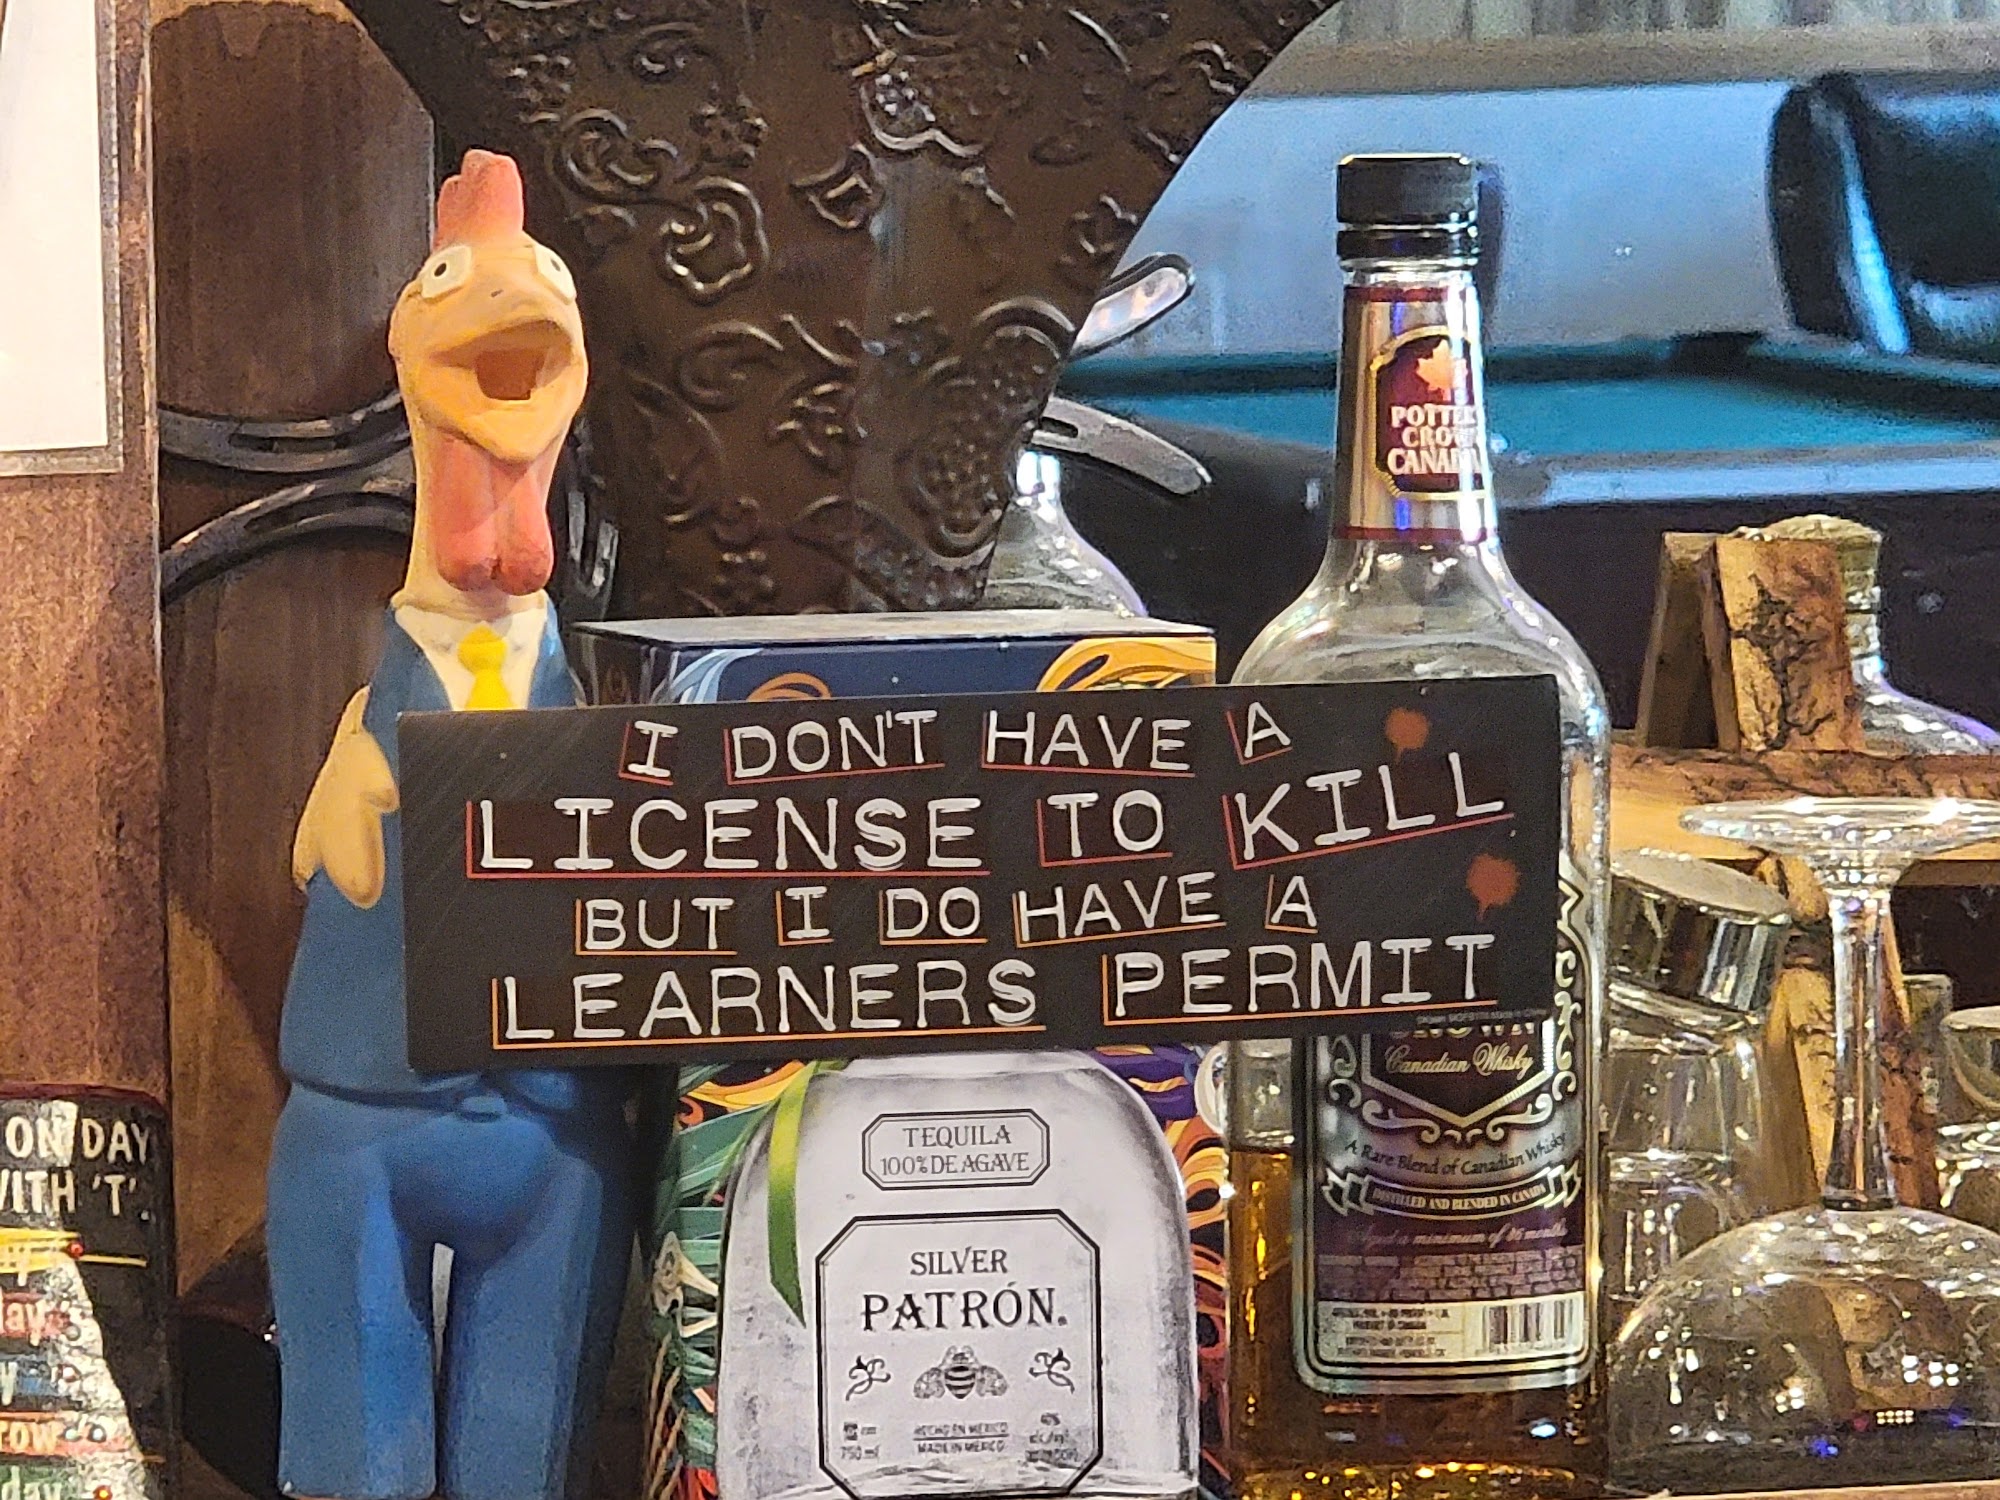 I DON'T HAVE A
LICENSE TO KILL
BUT I DO HAVE A
LEARNERS PERMIT
CANADA
Canadian Whisky
A Rare Blend of Canadian Whisky
DISTILLED AND BLENDED IN CANADA
Aged a minimum of 36 months
TEQUILA
100% DE AGAVE
SILVER
PATRÓN
HECHO EN MEXICO
MADE IN MEXICO
750 ml
40%
ON DAY
WITH 'T'.